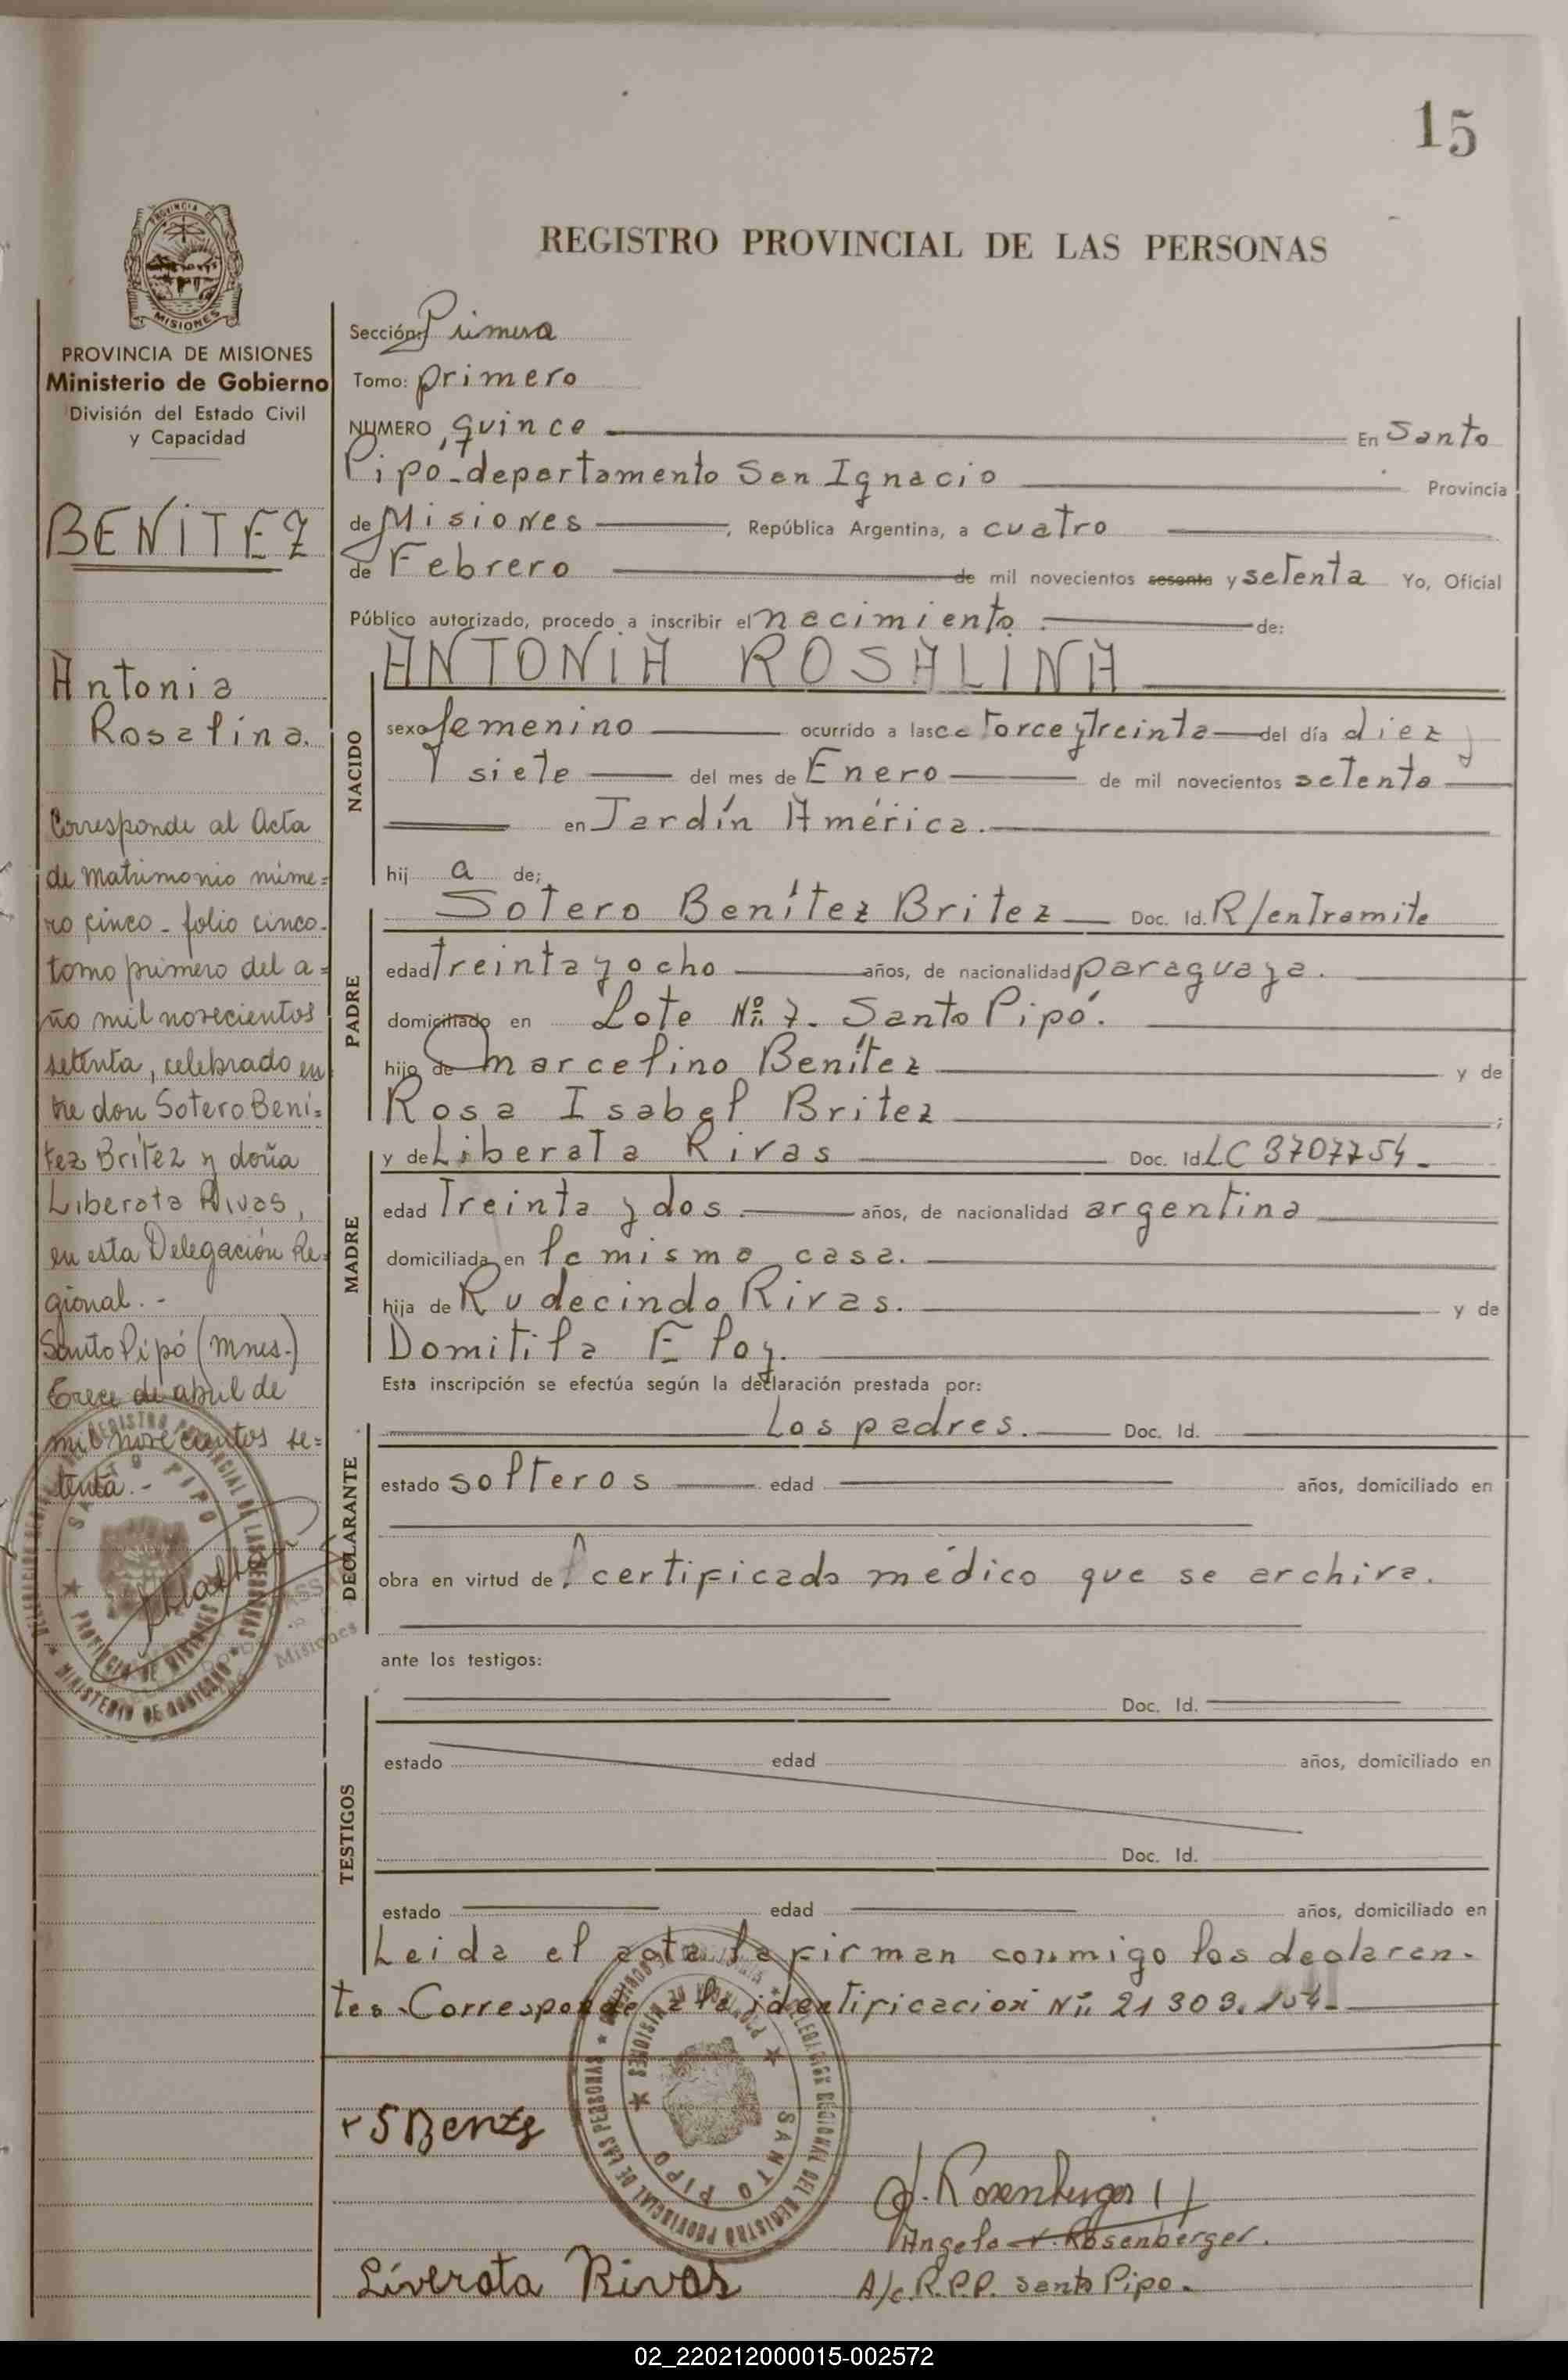 15
REGISTRO PROVINCIAL DE LAS PERSONAS
PROVINCIA DE MISIONES
Ministerio de Gobierno
División del Estado Civil
y Capacidad
BENITEZ
Antonia
Rosalina.
Corresponde al Acta
de matrimonio núme=
ro cinco - folio cinco-
tomo primero del a=
ño mil novecientos
setenta, celebrado en
tre don Sotero Bení=
tez Brítez y doña
Liberata Rivas,
en esta Delegación Re=
gional.-
Santo Pipó (Mnes.)
trece de abril de
mil novecientos se=
tenta.-
Sección: Primera
Tomo: primero
NUMERO quince En Santo
Pipó-departamento San Ignacio Provincia
de Misiones, República Argentina, a cuatro
de Febrero de mil novecientos sesenta y setenta Yo, Oficial
Público autorizado, procedo a inscribir el nacimiento. de:
ANTONIA ROSALINA
NACIDO
sexo femenino ocurrido a las catorce y treinta del día diez y
y siete del mes de Enero de mil novecientos setenta
en Jardín América.
hij a de;
PADRE
Sotero Benítez Britez Doc. Id. R/en Tramite
edad treinta y ocho años, de nacionalidad paraguaya.
domiciliado en Lote Nº 7. Santo Pipó.
hijo de Marcelino Benítez y de
Rosa Isabel Britez ;
MADRE
y de Liberata Rivas Doc. Id. LC 3707754.
edad Treinta y dos. años, de nacionalidad argentina
domiciliada en la misma casa.
hija de Rudecindo Rivas. y de
Domitila Eloy.
Esta inscripción se efectúa según la declaración prestada por:
DECLARANTE
Los padres. Doc. Id.
estado solteros edad años, domiciliado en
obra en virtud del certificado médico que se archiva.
ante los testigos:
TESTIGOS
Doc. Id.
estado edad años, domiciliado en
Doc. Id.
estado edad años, domiciliado en
Leida el acta la firman conmigo los declaran-
tes. Corresponde a la identificación Nº 21.303.154.
S Benz
Liverata Rivas
A. Rosenberger
Angela Rosenberger.
A/c. R.P.P. Santo Pipo.
DELEGACION REGIONAL DEL REGISTRO PROVINCIAL DE LAS PERSONAS
SANTO PIPO
PROVINCIA DE MISIONES
MINISTERIO DE GOBIERNO
02_220212000015-002572